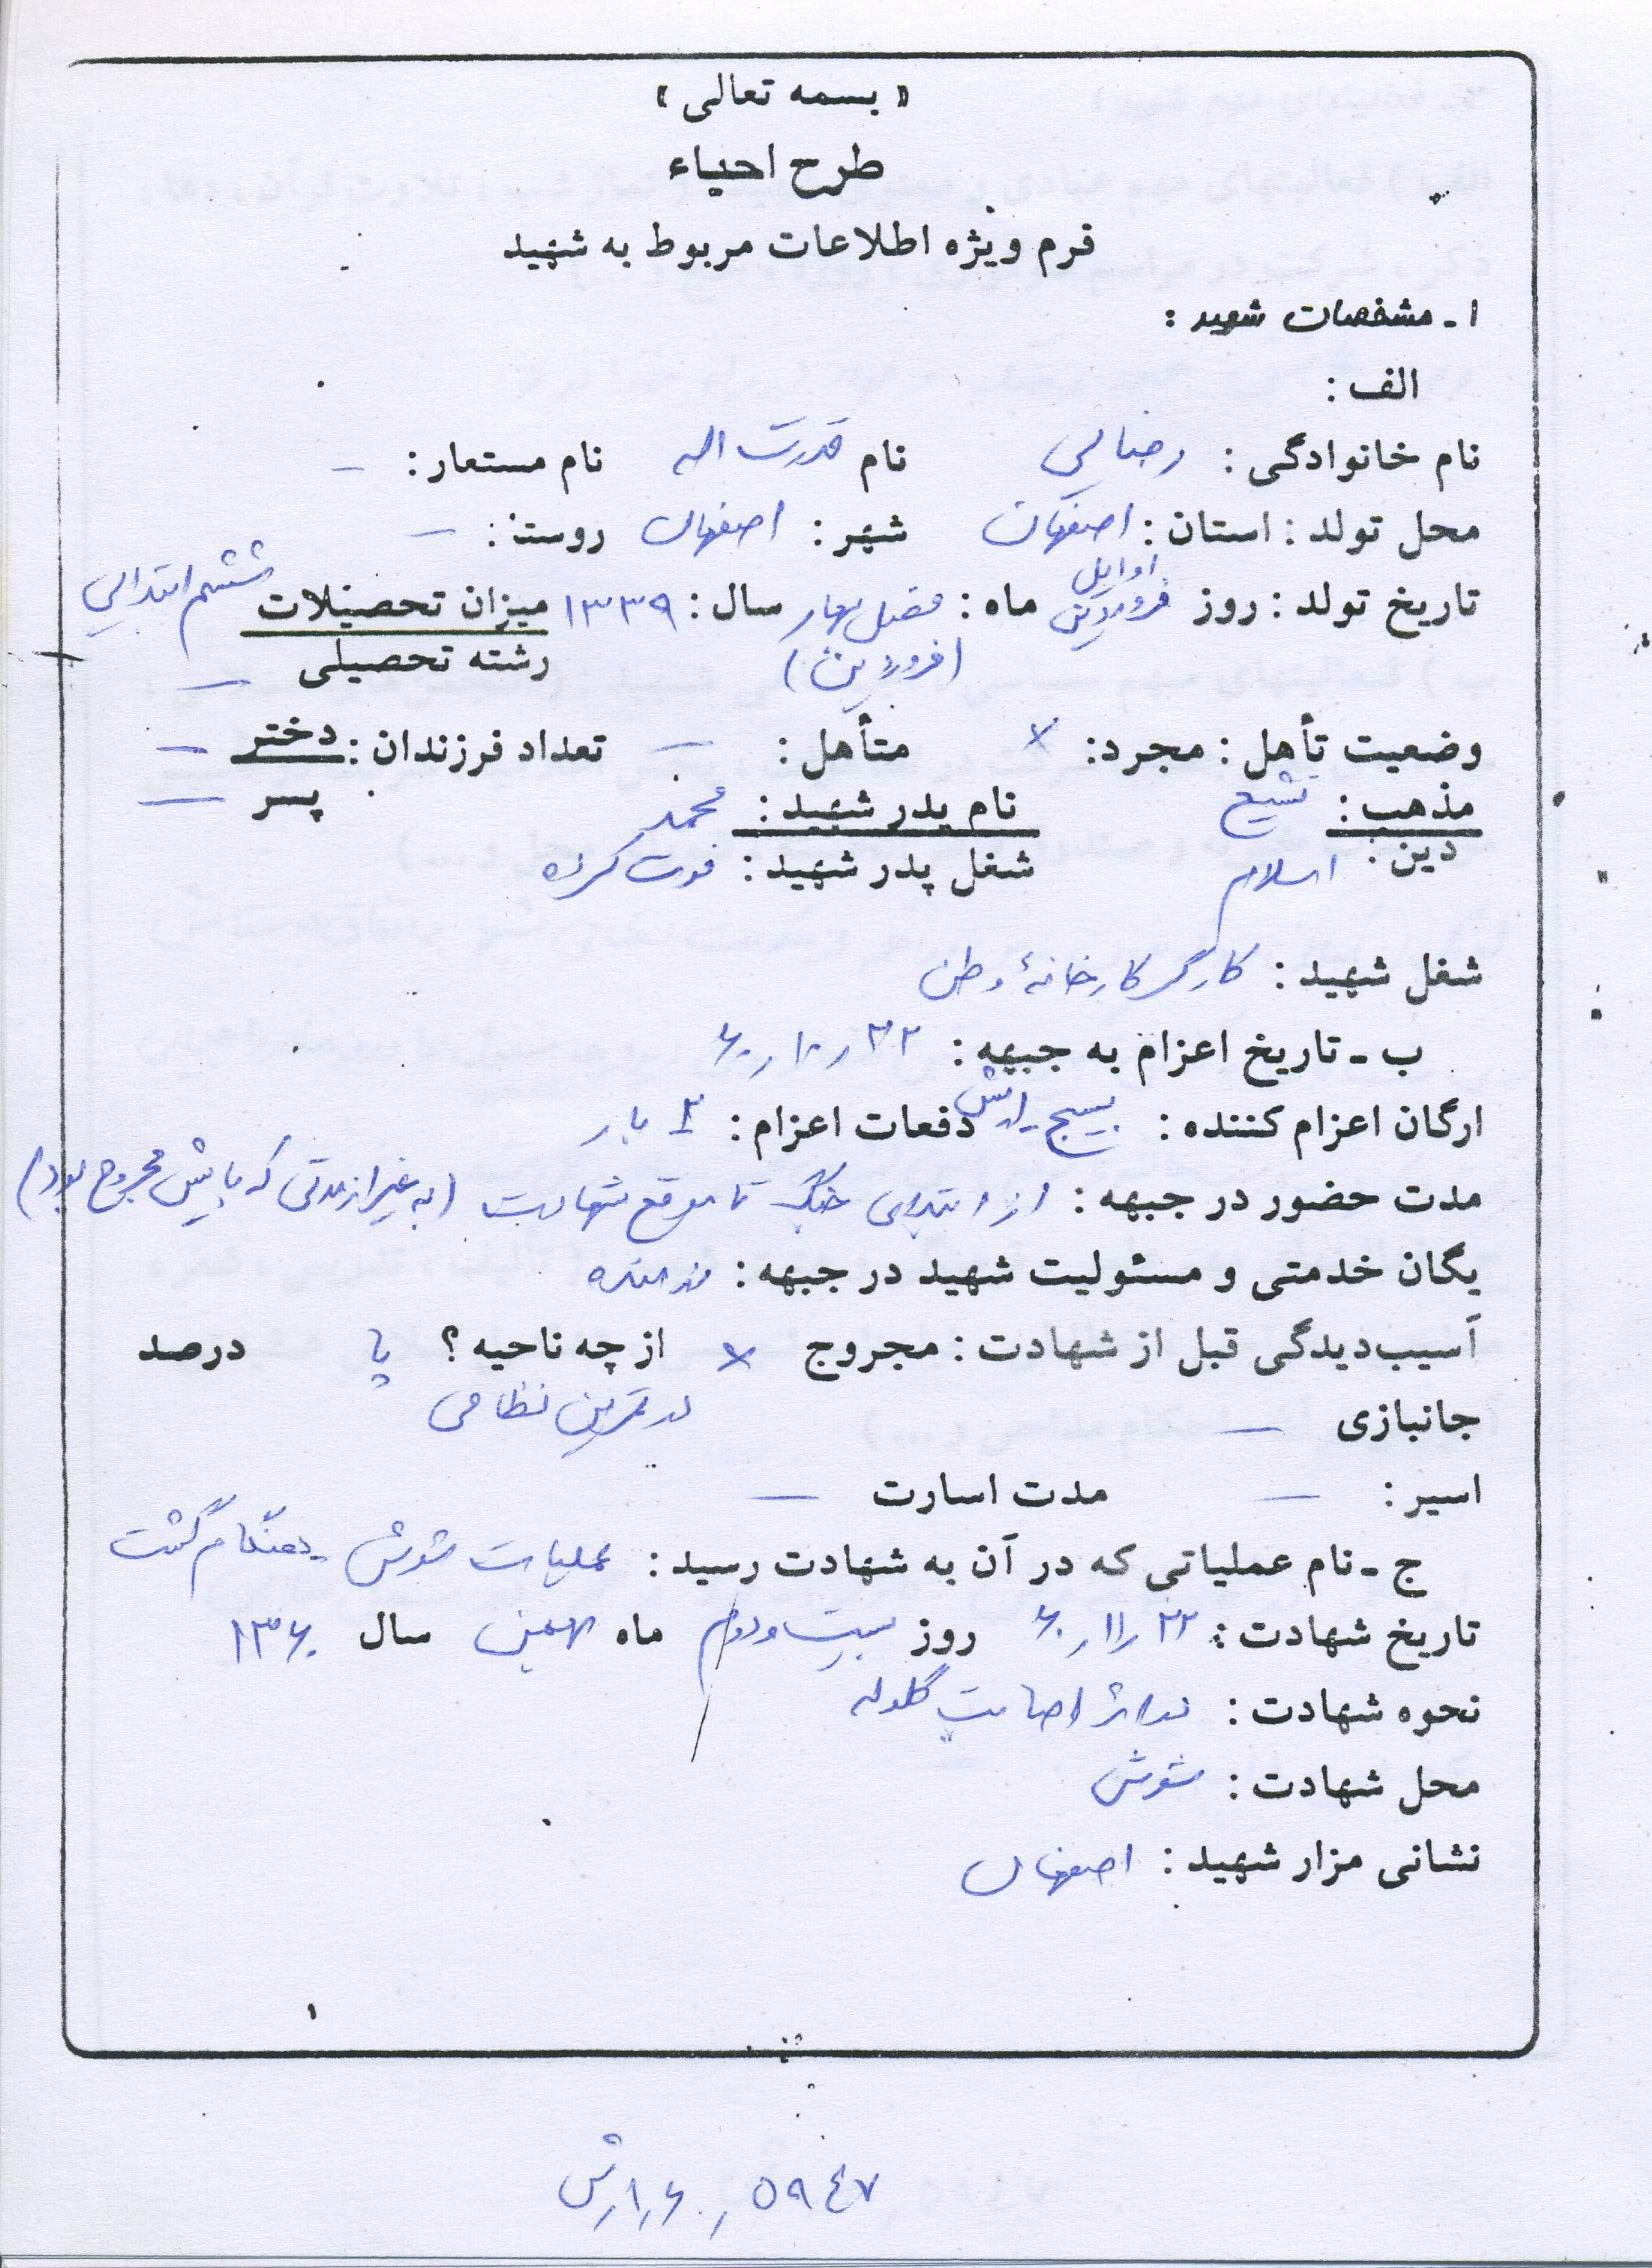 « بسمه تعالی »
طرح احیاء
فرم ویژه اطلاعات مربوط به شهید
۱ - مشخصات شهید :
الف :
نام خانوادگی : رضایی نام قدرت اله نام مستعار : –
محل تولد : استان : اصفهان شهر : اصفهان روستا : –
تاریخ تولد : روز اوایل فروردین ماه : فصل بهار (فروردین) سال : ۱۳۳۹ میزان تحصیلات ششم ابتدایی
رشته تحصیلی –
وضعیت تأهل : مجرد : × متأهل : – تعداد فرزندان : دختر –
مذهب : تشیع نام پدر شهید : محمد پسر –
دین : اسلام شغل پدر شهید : فوت کرده
شغل شهید : کارگر کارخانهٔ وطن
ب - تاریخ اعزام به جبهه : ۲۲ ر ۱۰ ر ۶۰
ارگان اعزام کننده : بسیج - ارتش دفعات اعزام : ۲ بار
مدت حضور در جبهه : از ابتدای جنگ تا موقع شهادت (به غیر از مدتی که پایش مجروح بود)
یگان خدمتی و مسئولیت شهید در جبهه : رزمنده
آسیب‌دیدگی قبل از شهادت : مجروح × از چه ناحیه ؟ پا درصد
جانبازی – در تمرین نظامی
اسیر : – مدت اسارت –
ج - نام عملیاتی که در آن به شهادت رسید : عملیات شوش - هنگام گشت
تاریخ شهادت : ۲۲ ر ۱۱ ر ۶۰ روز بیست و دوم ماه بهمن سال ۱۳۶۰
نحوه شهادت : در اثر اصابت گلوله
محل شهادت : شوش
نشانی مزار شهید : اصفهان
۱
۵۹۴۷ ر ۶۰ ر ۱ ر ش